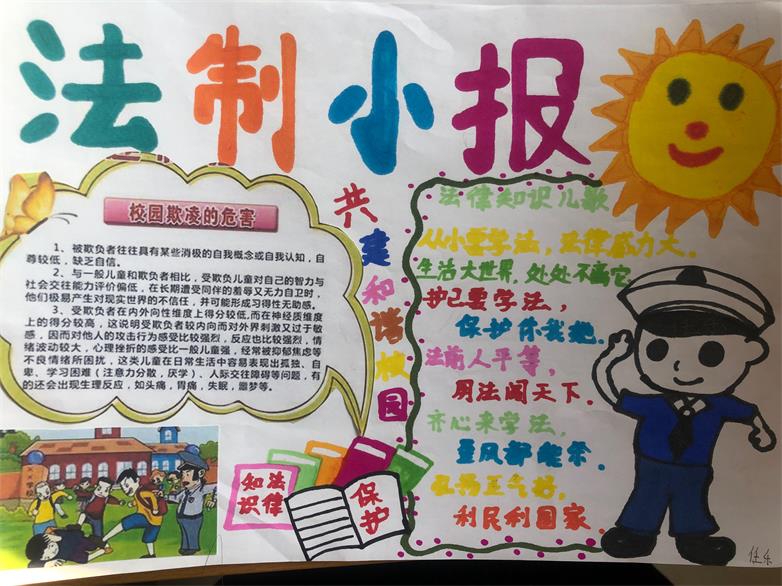 法制小报
校园欺凌的危害
1、被欺负者往往具有某些消极的自我概念或自我认知，自
尊较低，缺乏自信。
2、与一般儿童和欺负者相比，受欺负儿童对自己的智力与
社会交往能力评价偏低，在长期遭受同伴的羞辱又无力自卫时，
他们极易产生对现实世界的不信任，并可能形成习得性无助感。
3、受欺负者在内外向性维度上得分较低，而在神经质维度
上的得分较高，这说明受欺负者较内向而对外界刺激又过于敏
感，因而对他人的攻击行为感受比较强烈，反应也比较强烈，情
绪波动较大，心理挫折的感受比一般儿童强，经常被抑郁焦虑等
不良情绪所困扰，这类儿童在日常生活中容易表现出孤独、自
卑、学习困难（注意力分散，厌学）、人际交往障碍等问题，有
的还会出现生理反应，如头痛，胃痛，失眠，噩梦等。
共建和谐校园
法律知识儿歌
从小要学法，法律威力大。
生活大世界，处处不离它
护己要学法，
保护你我她.
法前人平等，
用法闯天下.
齐心来学法，
利民利国家.
知法
识律
保护